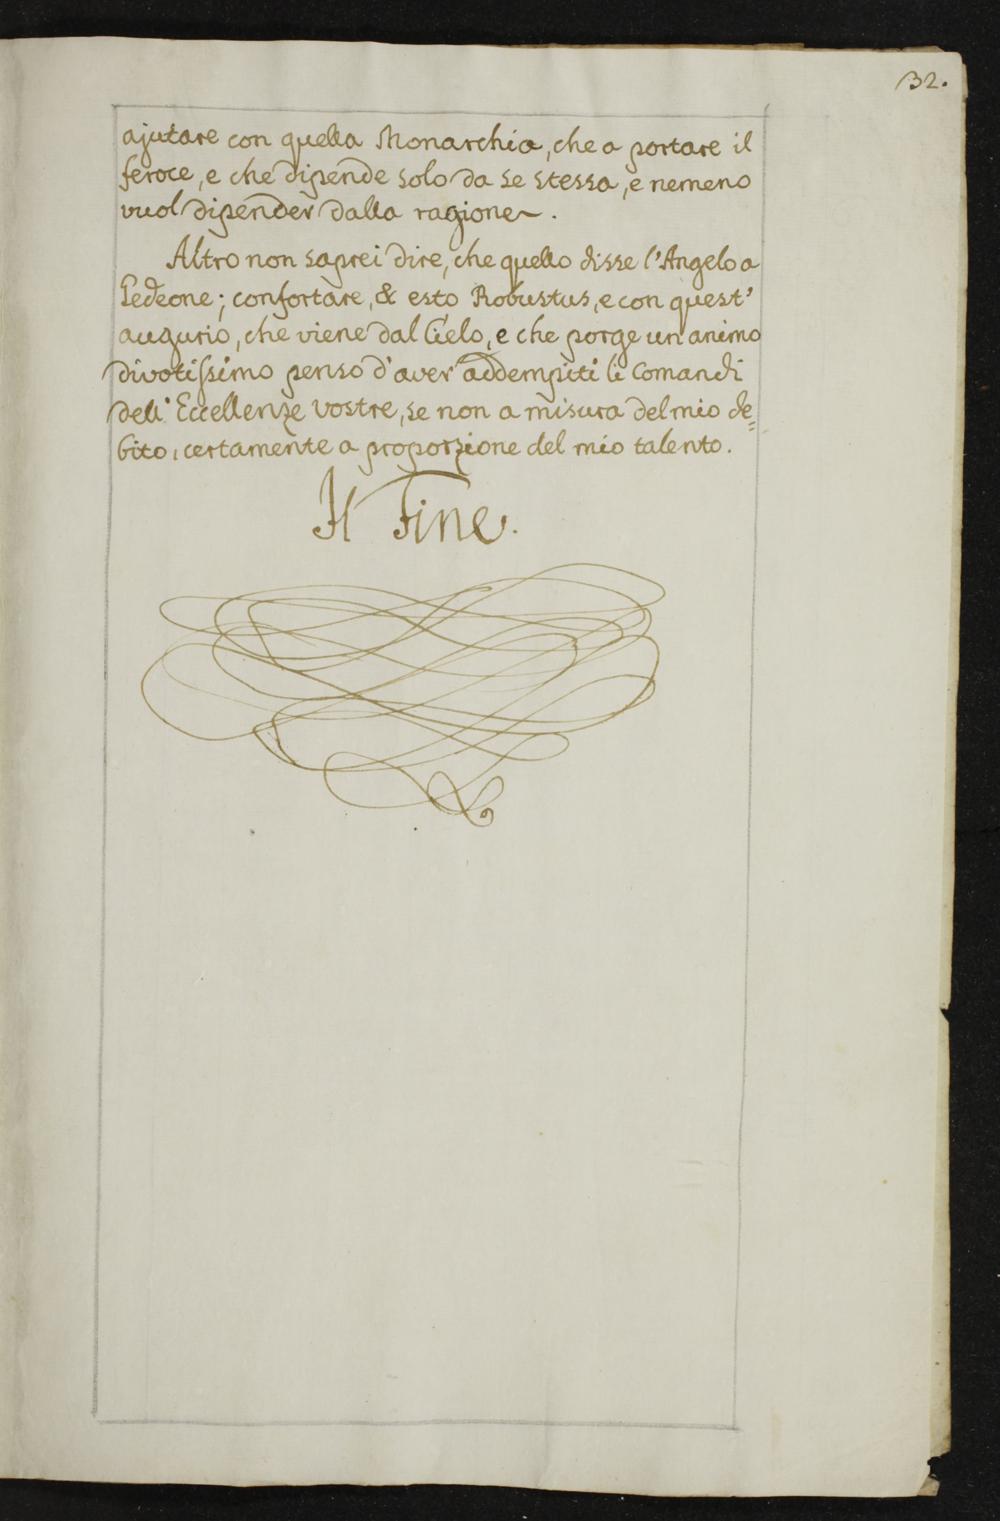 132.
ajutare con quella Monarchia, che a portare il
feroce, e che dipende solo da se stessa, e nemeno
vuol dipender dalla ragione.
Altro non saprei dire, che quello disse l'Angelo a
Gedeone; confortare, & esto Robustus, e con quest'
augurio, che viene dal Cielo, e che porge un animo
divotissimo penso d'aver addempiti li Comandi
dell' Eccellenze vostre, se non a misura del mio de=
bito, certamente a proporzione del mio talento.
Il Fine.